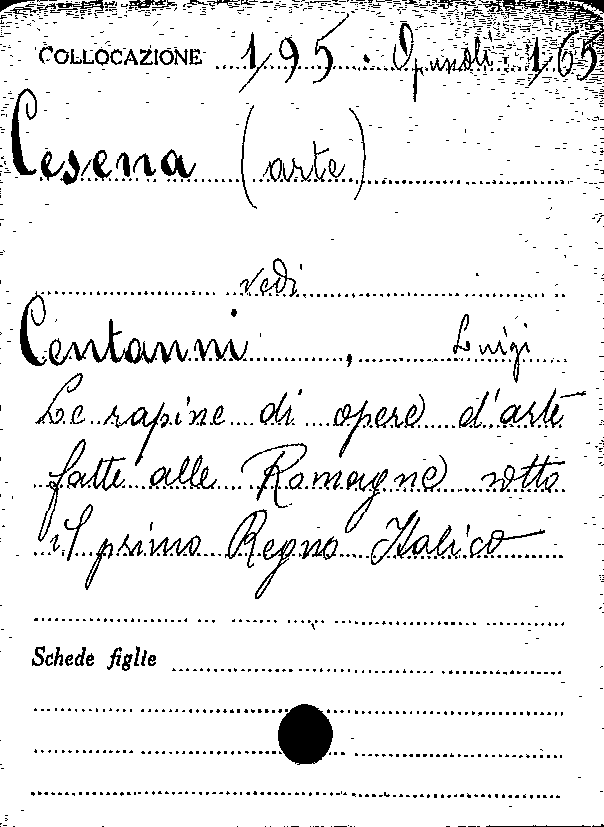 COLLOCAZIONE 195. Opuscoli. 165
Cesena (arte)
vedi
Centanni, Luigi
Le rapine di opere d'arte
fatte alle Romagne sotto
il primo Regno Italico
Schede figlie